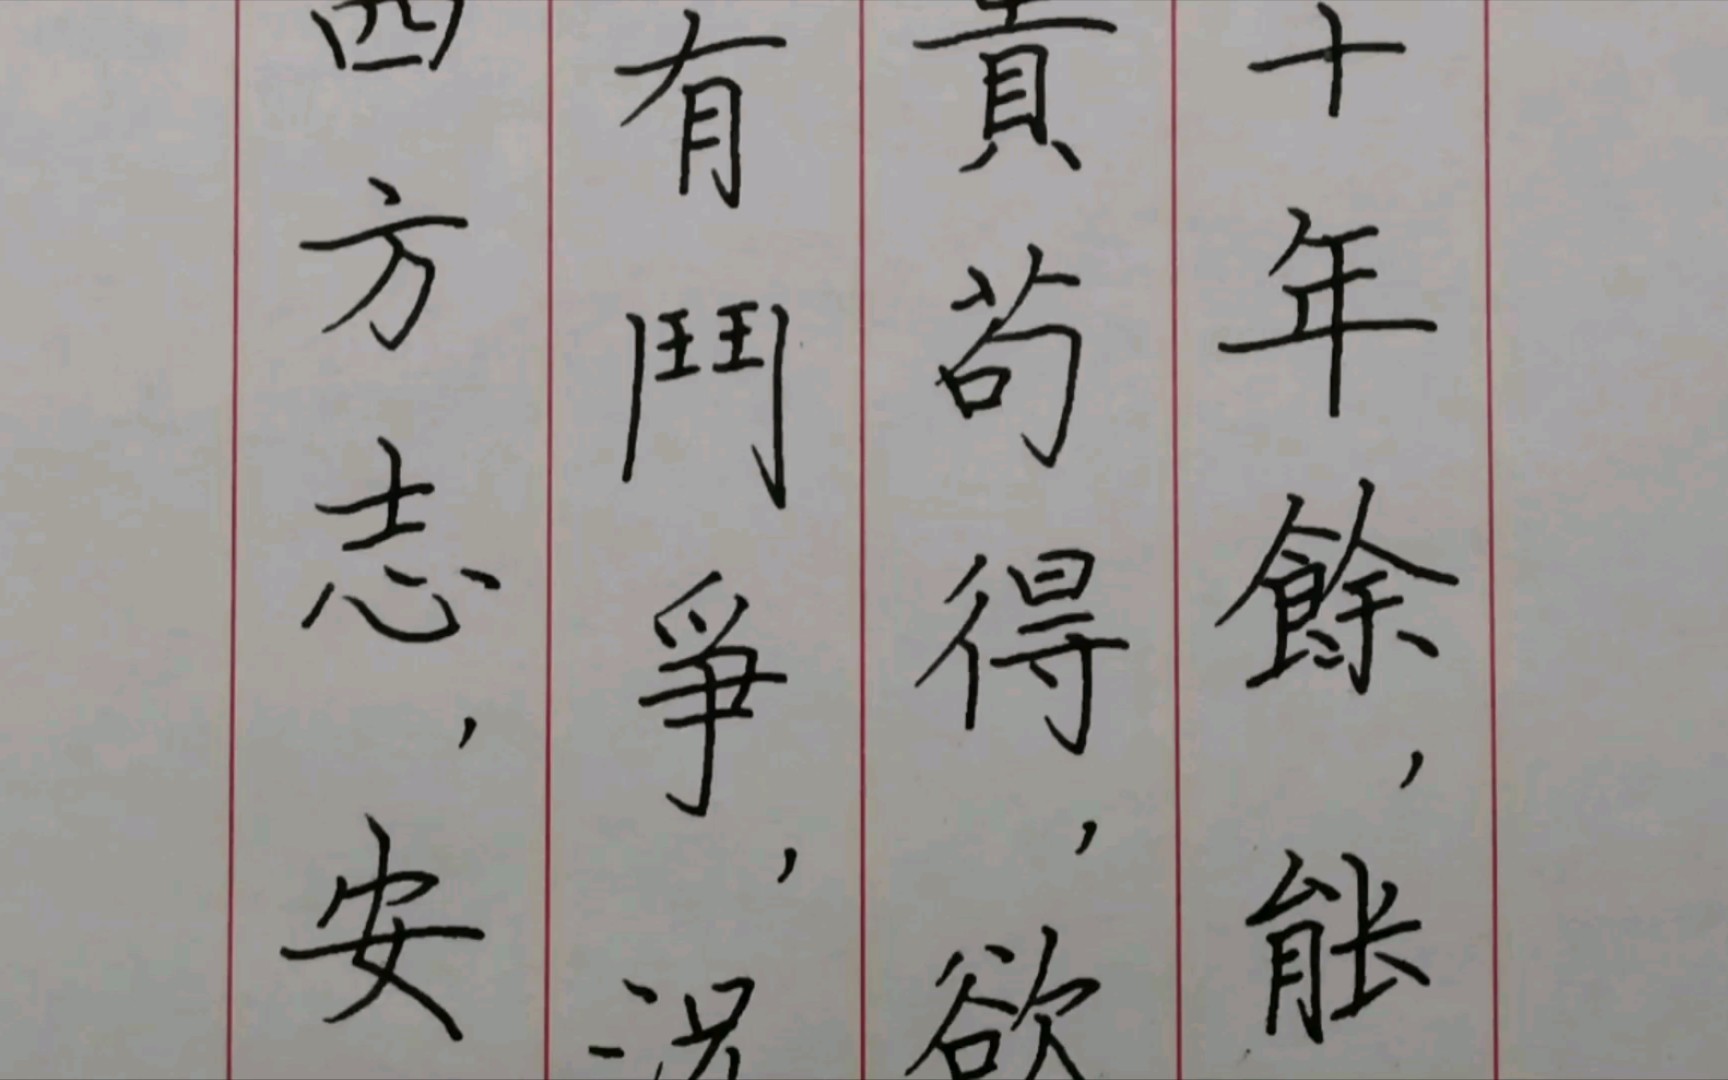 十年餘，能
責苟得，欲
有鬥爭，況
四方志，安